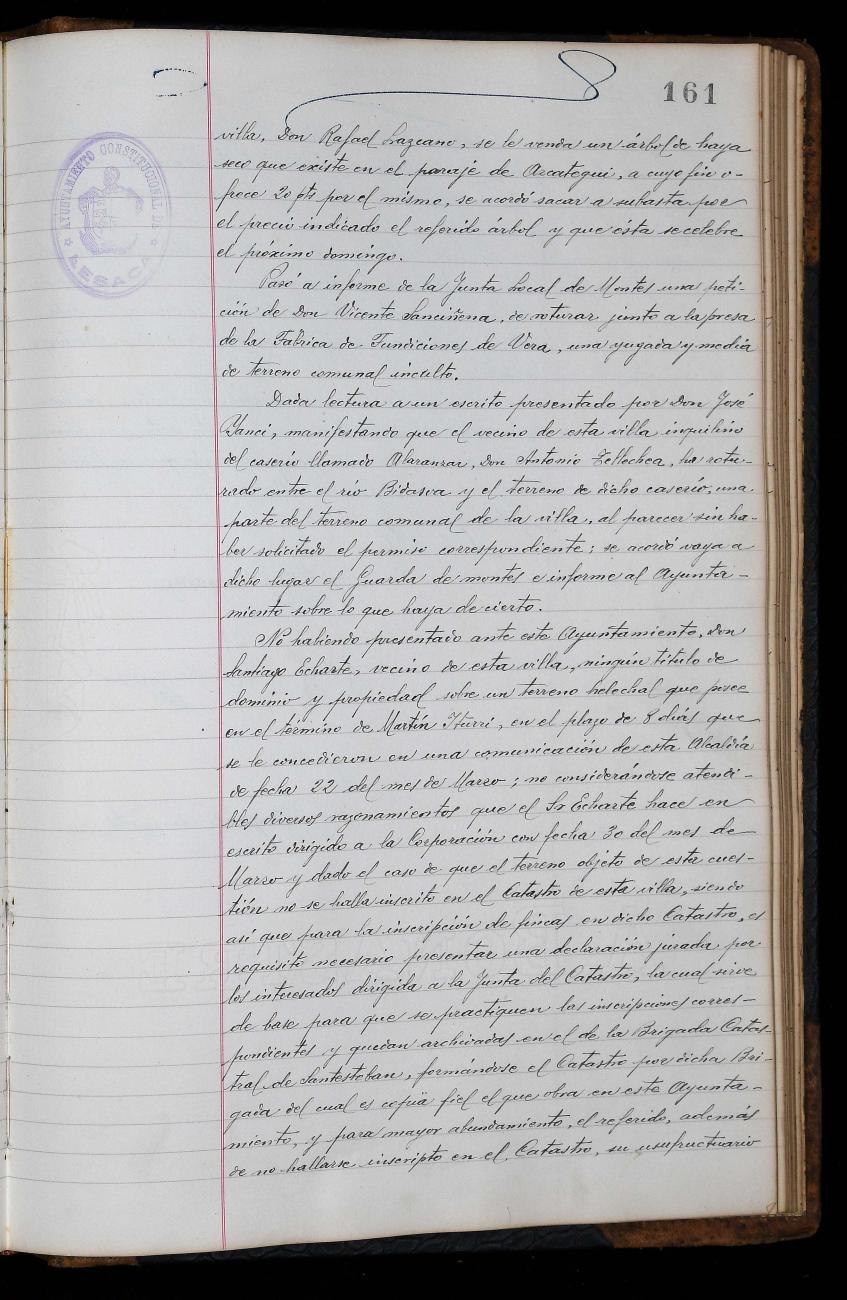 161
AYUNTAMIENTO CONSTITUCIONAL DE
LESACA
villa, Don Rafael Lazcano, se le venda un árbol de haya
seco que existe en el paraje de Arcategui, a cuyo fin o-
frece 20 pts por el mismo, se acordó sacar a subasta por
el precio indicado el referido árbol y que ésta se celebre
el próximo domingo.
Pasó a informe de la Junta Local de Montes una peti-
ción de Don Vicente Sanciñena, de roturar junto a la presa
de la Fabrica de Fundiciones de Vera, una yugada y media
de terreno comunal inculto.
Dada lectura a un escrito presentado por Don José
Yanci, manifestando que el vecino de esta villa inquilino
del caserio llamado Alaranzar, Don Antonio Tellechea, ha rotu-
rado entre el río Bidasoa y el terreno de dicho caserío, una
parte del terreno comunal de la villa, al parecer sin ha-
ber solicitado el permiso correspondiente; se acordó vaya a
dicho lugar el Guarda de montes e informe al Ayunta-
miento sobre lo que haya de cierto.
No habiendo presentado ante este Ayuntamiento, Don
Santiago Echarte, vecino de esta villa, ningún título de
dominio y propiedad sobre un terreno helechal que posee
en el término de Martín Iturri, en el plazo de 8 días que
se le concedieron en una comunicación de esta Alcaldía
de fecha 22 del mes de Marzo; no considerándose atendi-
bles diversos razonamientos que el Sr Echarte hace en
escrito dirigido a la Corporación con fecha 30 del mes de
Marzo y dado el caso de que el terreno objeto de esta cues-
tión no se halla inscrito en el Catastro de esta villa, siendo
así que para la inscripción de fincas en dicho Catastro, es
requisito necesario presentar una declaración jurada por
los interesados dirigida a la Junta del Catastro, la cual sirve
de base para que se practiquen las inscripciones corres-
pondientes y quedan archivadas en el de la Brigada Catas-
tral de Santesteban, formándose el Catastro por dicha Bri-
gada del cual es copia fiel el que obra en este Ayunta-
miento, y para mayor abundamiento, el referido, además
de no hallarse inscripto en el Catastro, su usufructuario